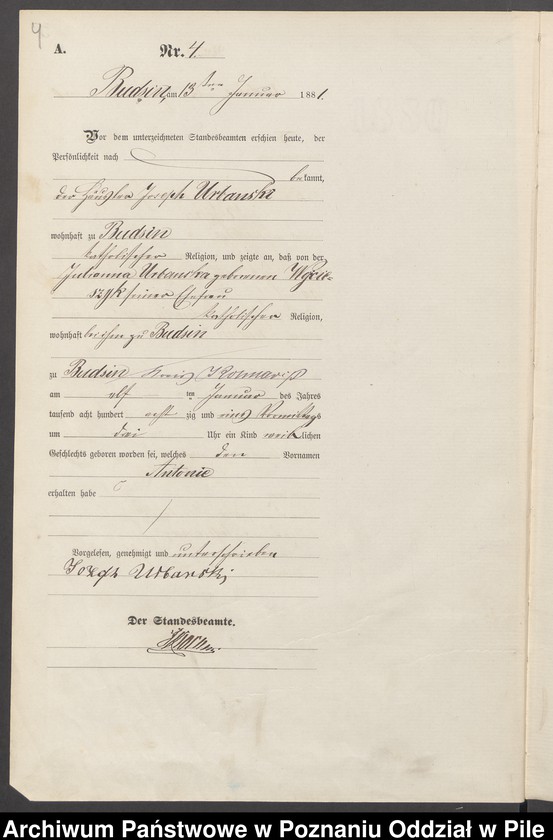 4
A.
Nr. 4
Budsin, am 13 ten Januar 1881.
Vor dem unterzeichneten Standesbeamten erschien heute, der
Persönlichkeit nach
bekannt,
der Häusler Joseph Urbanski
wohnhaft zu Budsin
katholischer Religion, und zeigte an, daß von der
Julianna Urbanska geborenen
seiner Ehefrau
katholischer Religion,
wohnhaft bei ihm zu Budsin
zu Budsin Kreis
am elf ten Januar des Jahres
tausend acht hundert acht zig und eins Vormittags
um drei Uhr ein Kind weiblichen
Geschlechts geboren worden sei, welches den Vornamen
Antonie
erhalten habe
Vorgelesen, genehmigt und unterschrieben
Jozef Urbanski
Der Standesbeamte.
Archiwum Państwowe w Poznaniu Oddział w Pile